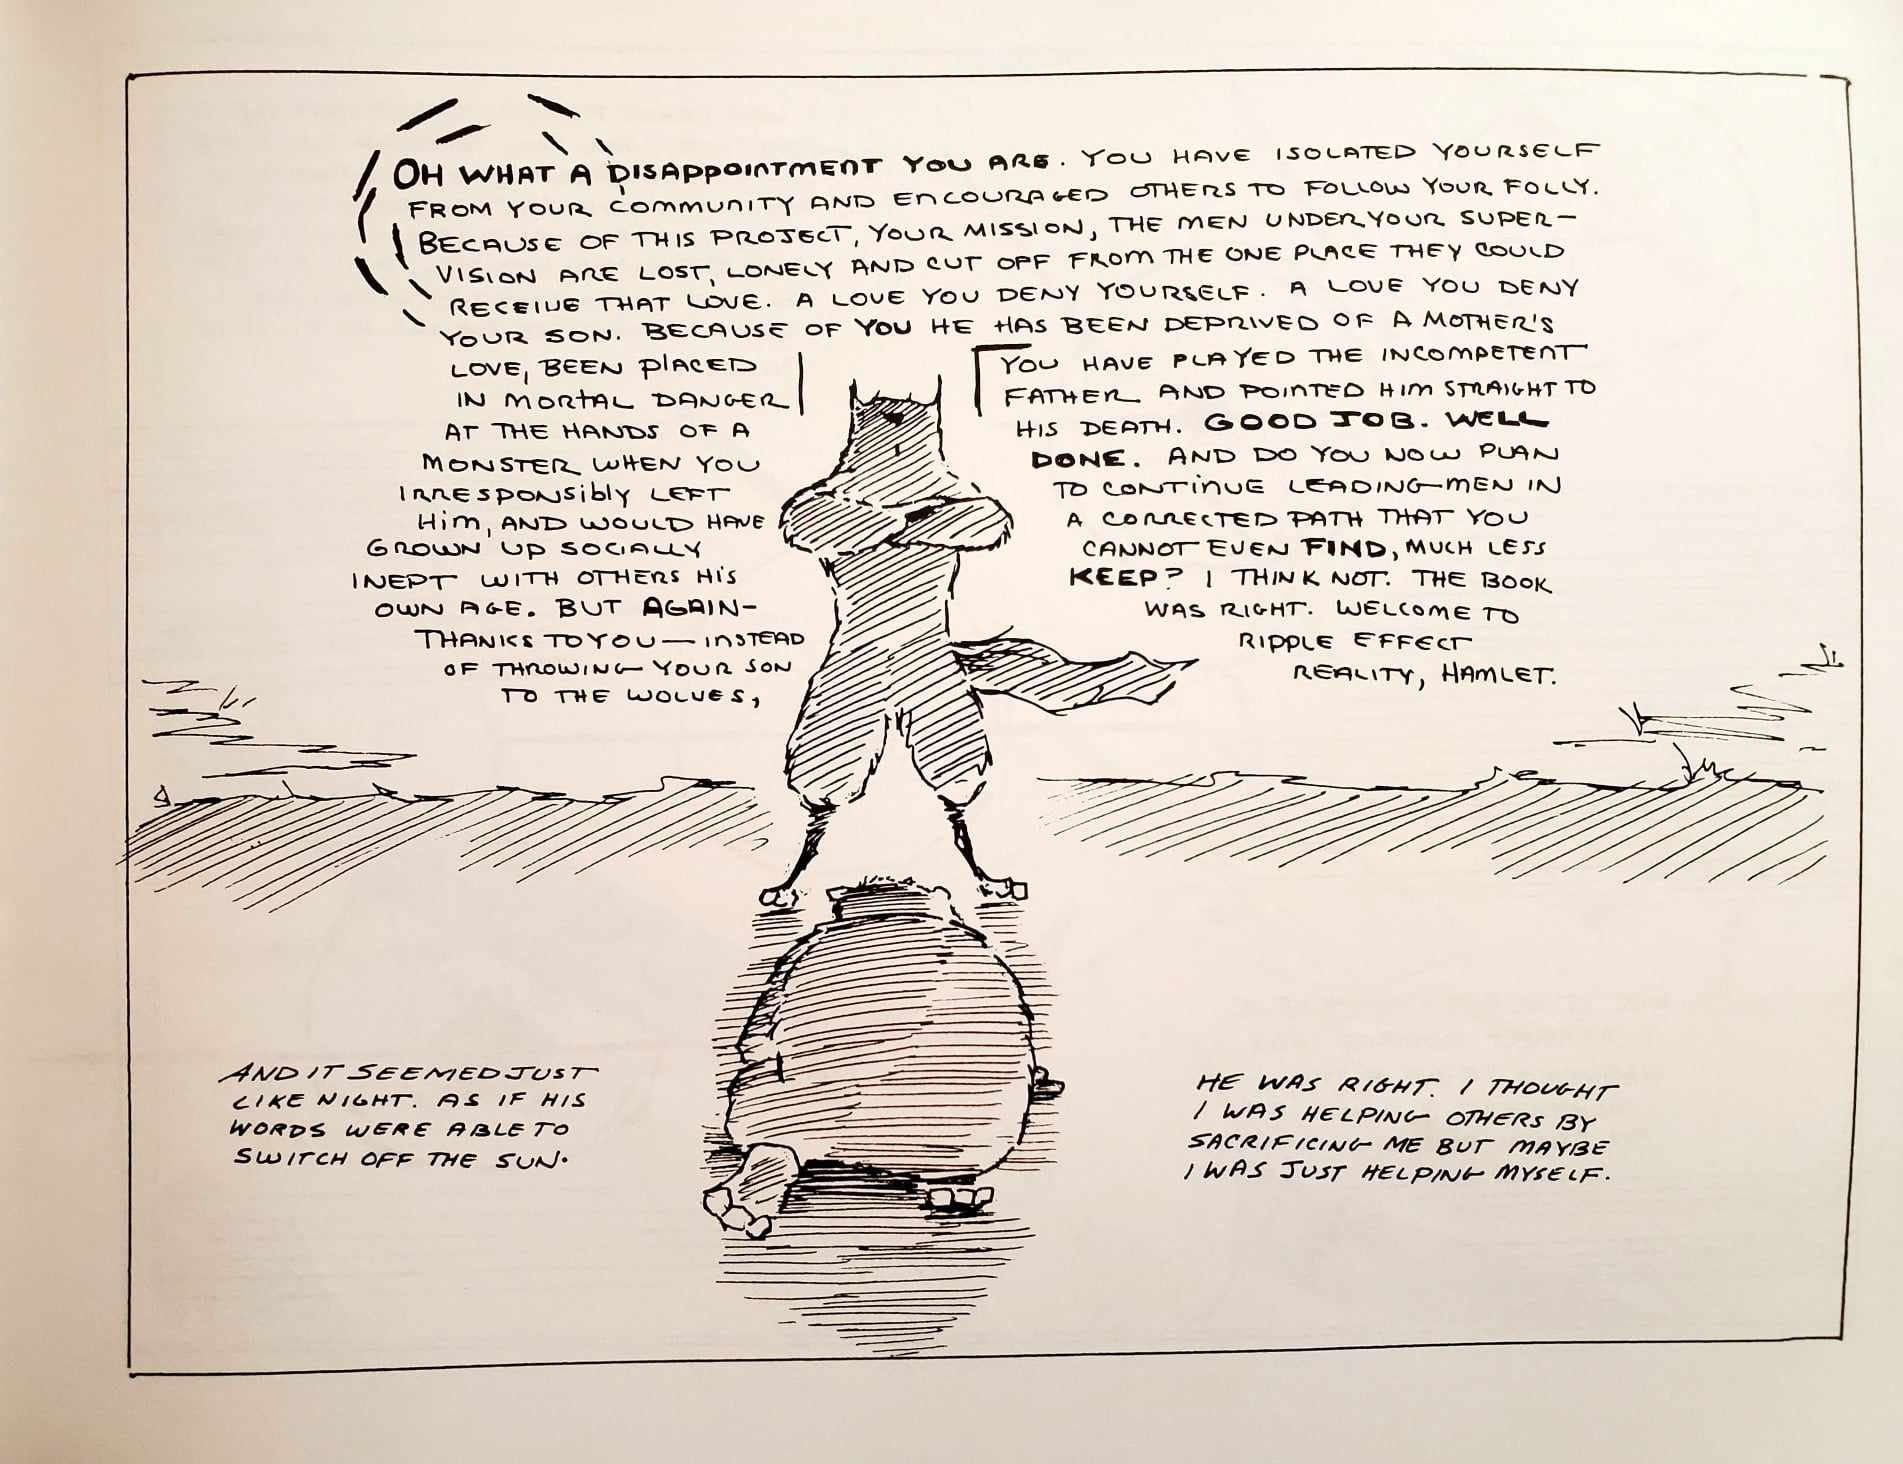 OH WHAT A DISAPPOINTMENT YOU ARE. YOU HAVE ISOLATED YOURSELF
FROM YOUR COMMUNITY AND ENCOURAGED OTHERS TO FOLLOW YOUR FOLLY.
BECAUSE OF THIS PROJECT, YOUR MISSION, THE MEN UNDER YOUR SUPER-
VISION ARE LOST, LONELY AND CUT OFF FROM THE ONE PLACE THEY COULD
RECEIVE THAT LOVE. A LOVE YOU DENY YOURSELF. A LOVE YOU DENY
YOUR SON. BECAUSE OF YOU HE HAS BEEN DEPRIVED OF A MOTHER'S
LOVE, BEEN PLACED
IN MORTAL DANGER
AT THE HANDS OF A
MONSTER WHEN YOU
IRRESPONSIBLY LEFT
HIM, AND WOULD HAVE
GROWN UP SOCIALLY
INEPT WITH OTHERS HIS
OWN AGE. BUT AGAIN-
THANKS TO YOU - INSTEAD
OF THROWING YOUR SON
TO THE WOLVES,
YOU HAVE PLAYED THE INCOMPETENT
FATHER AND POINTED HIM STRAIGHT TO
HIS DEATH. GOOD JOB. WELL
DONE. AND DO YOU NOW PLAN
TO CONTINUE LEADING MEN IN
A CORRECTED PATH THAT YOU
CANNOT EVEN FIND, MUCH LESS
KEEP? I THINK NOT. THE BOOK
WAS RIGHT. WELCOME TO
RIPPLE EFFECT
REALITY, HAMLET.
AND IT SEEMED JUST
LIKE NIGHT. AS IF HIS
WORDS WERE ABLE TO
SWITCH OFF THE SUN.
HE WAS RIGHT. I THOUGHT
I WAS HELPING OTHERS BY
SACRIFICING ME BUT MAYBE
I WAS JUST HELPING MYSELF.